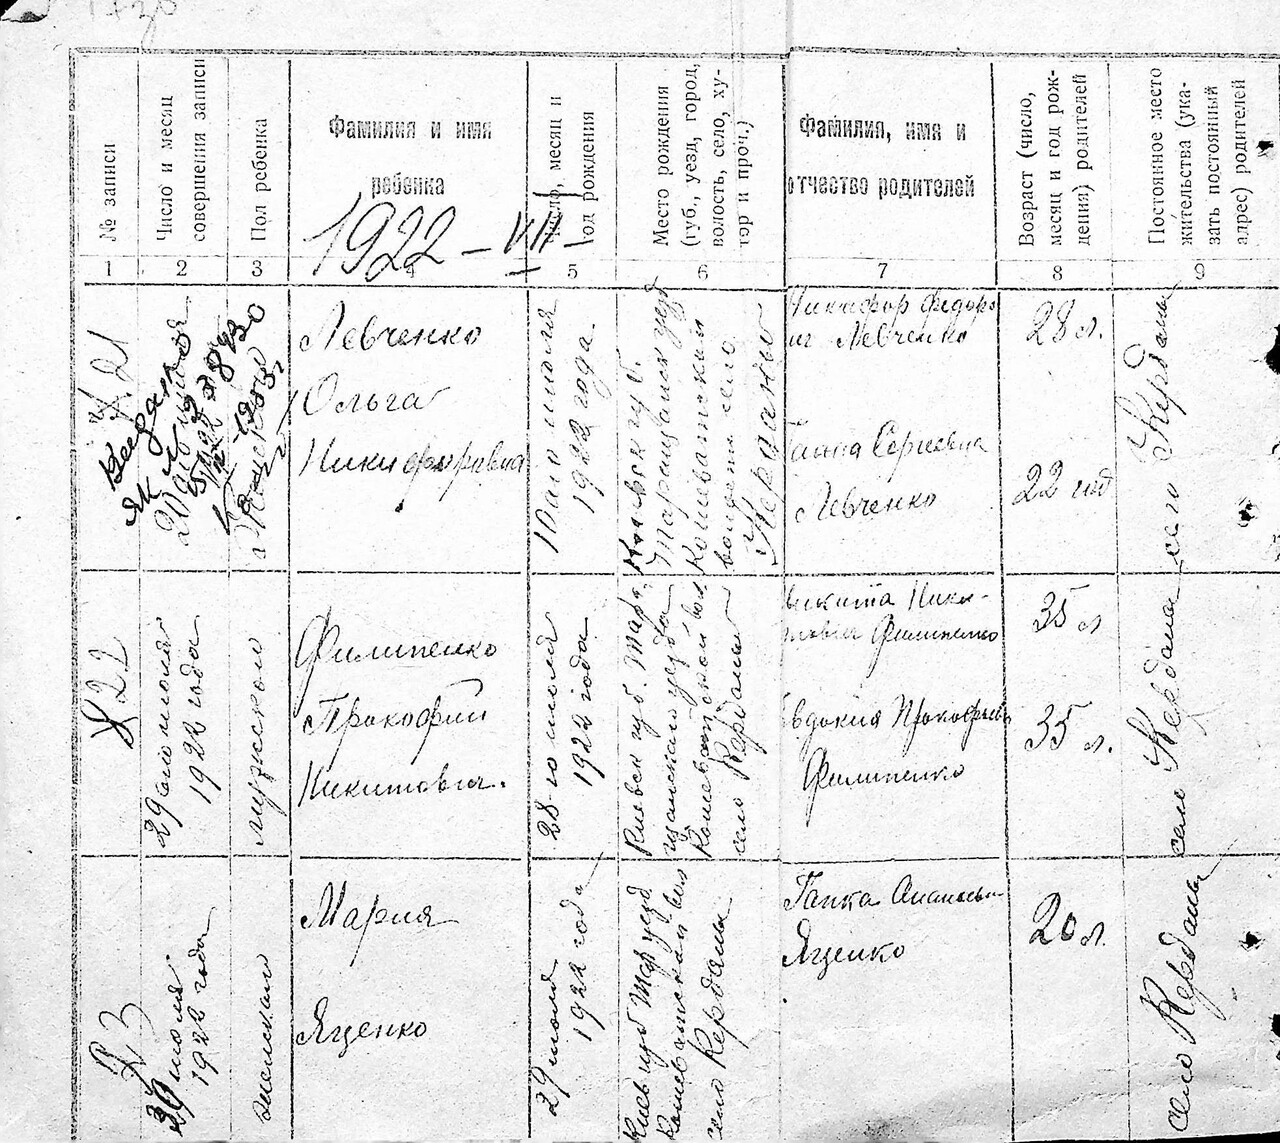 № записи
Число и месяц
совершения записи
Пол ребенка
Фамилия и имя
ребенка
месяц и
год рождения
Место рождения
(губ., уезд, город,
волость, село, ху-
тор и проч.)
Фамилия, имя и
отчество родителей
Возраст (число,
месяц и год рож-
дения) родителей
Постоянное место
жительства (ука-
зать постоянный
адрес) родителей
1922 - VII
1 2 3 4 5 6 7 8 9
21
Левченко
Ольга
Никифоровна
июля
1922 года.
Киевск губ.
Таращанск уезд
село
Керданы
Никифор Федоро
Левченко
Сергиевна
Левченко
28 л.
22 год
село Керданы
22
29 июля
1922 года
мужской
Филипенко
Прокофий
Никитович.
28-го июля
1922 года
Киевск губ. Тара
щанского уезда
село Керданы
Никита Ники-
Филипенко
Евдокия Прокофьев
Филипенко
35 л
35 л.
село Керданы
23
июля
1922 года
женский
Мария
Яценко
29 июля
1922 года
Киев губ Тар уезд
село Керданы
Гапка Ананьев
Яценко
20 л.
село Керданы